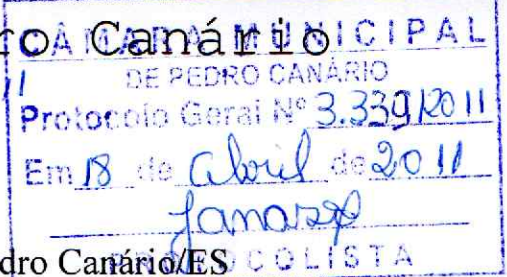 ro Canário
CÂMARA MUNICIPAL
DE PEDRO CANÁRIO
Protocolo Geral Nº 3.339/2011
Em 18 de abril de 2011
PROTOCOLISTA
dro Canário/ES